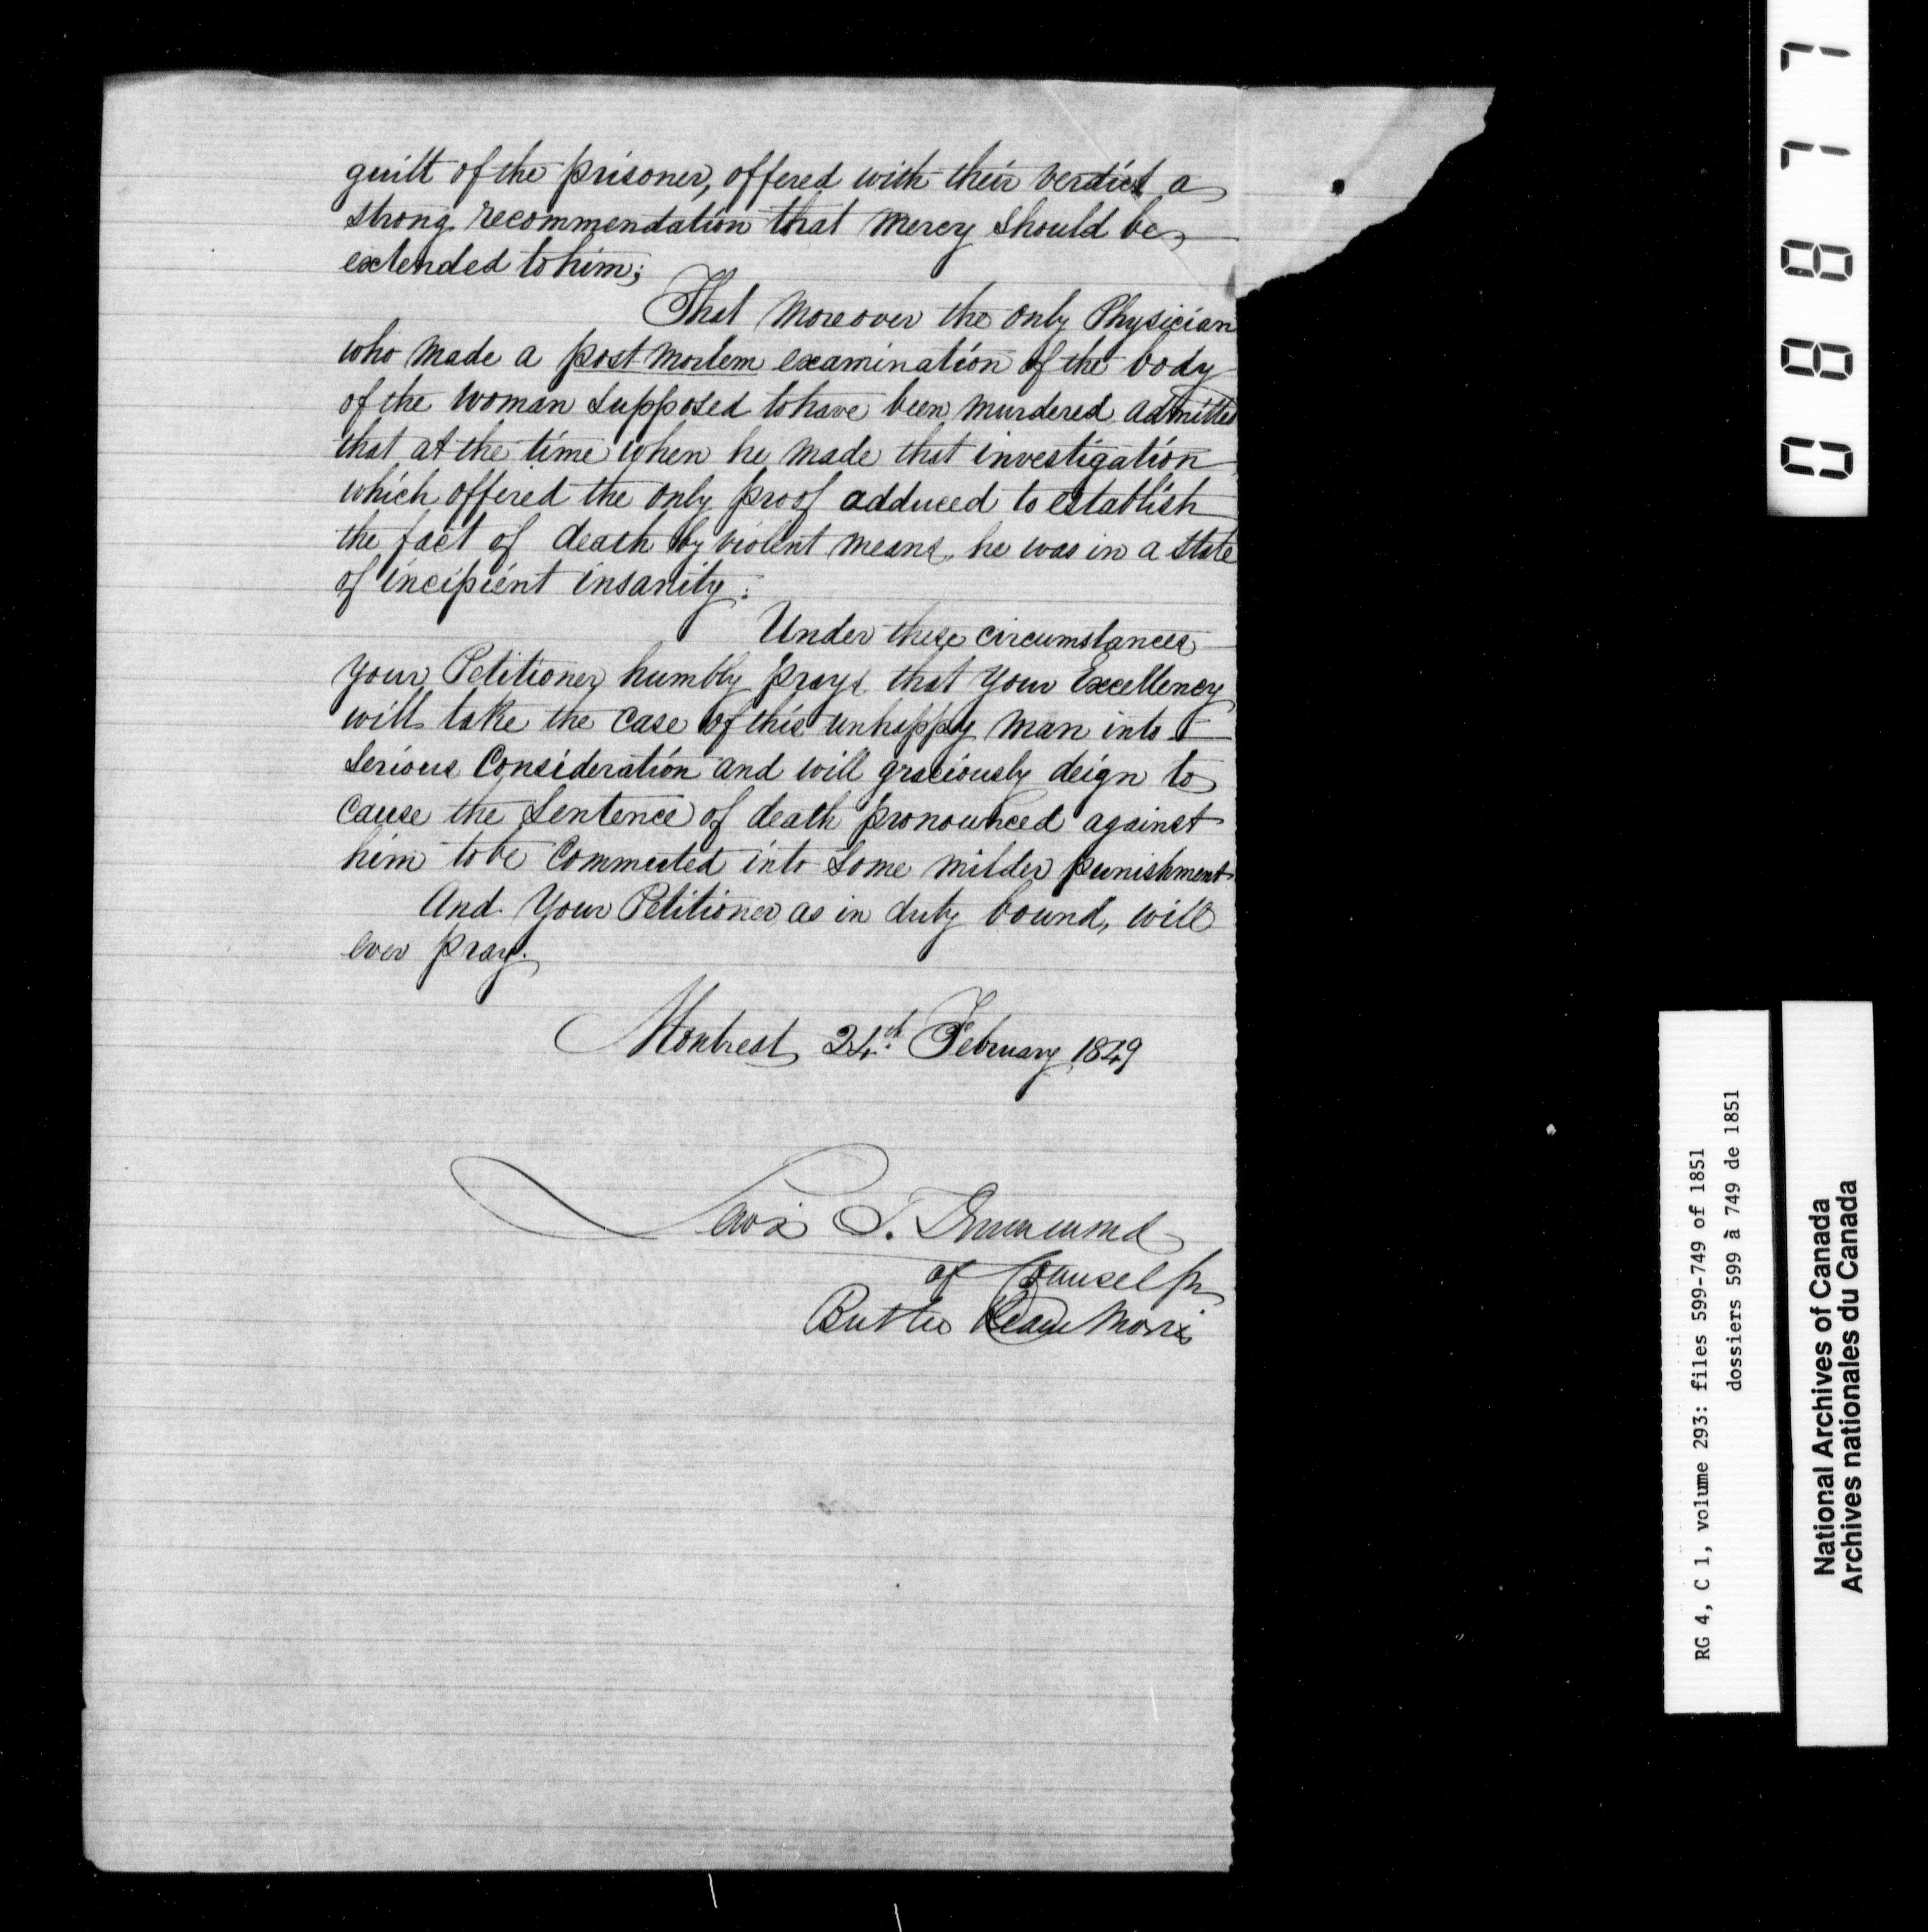 guilt of the prisoner, offered with their verdict a
strong recommendation that mercy should be
extended to him;
That moreover the only Physician
who made a post mortem examination of the body
of the woman supposed to have been murdered admitted
that at the time when he made that investigation
which offered the only proof adduced to establish
the fact of death by violent means, he was in a state
of incipient insanity.
Under these circumstances
your Petitioner humbly prays that Your Excellency
will take the case of this unhappy man into
serious Consideration and will graciously deign to
cause the Sentence of death pronounced against
him to be Commuted into some milder punishment
And Your Petitioner as in duty bound, will
ever pray.
Montreal 24th February 1849
Lewis T. Drummond
of Counsel for
08877
RG 4, C 1, volume 293: files 599-749 of 1851
dossiers 599 à 749 de 1851
National Archives of Canada
Archives nationales du Canada